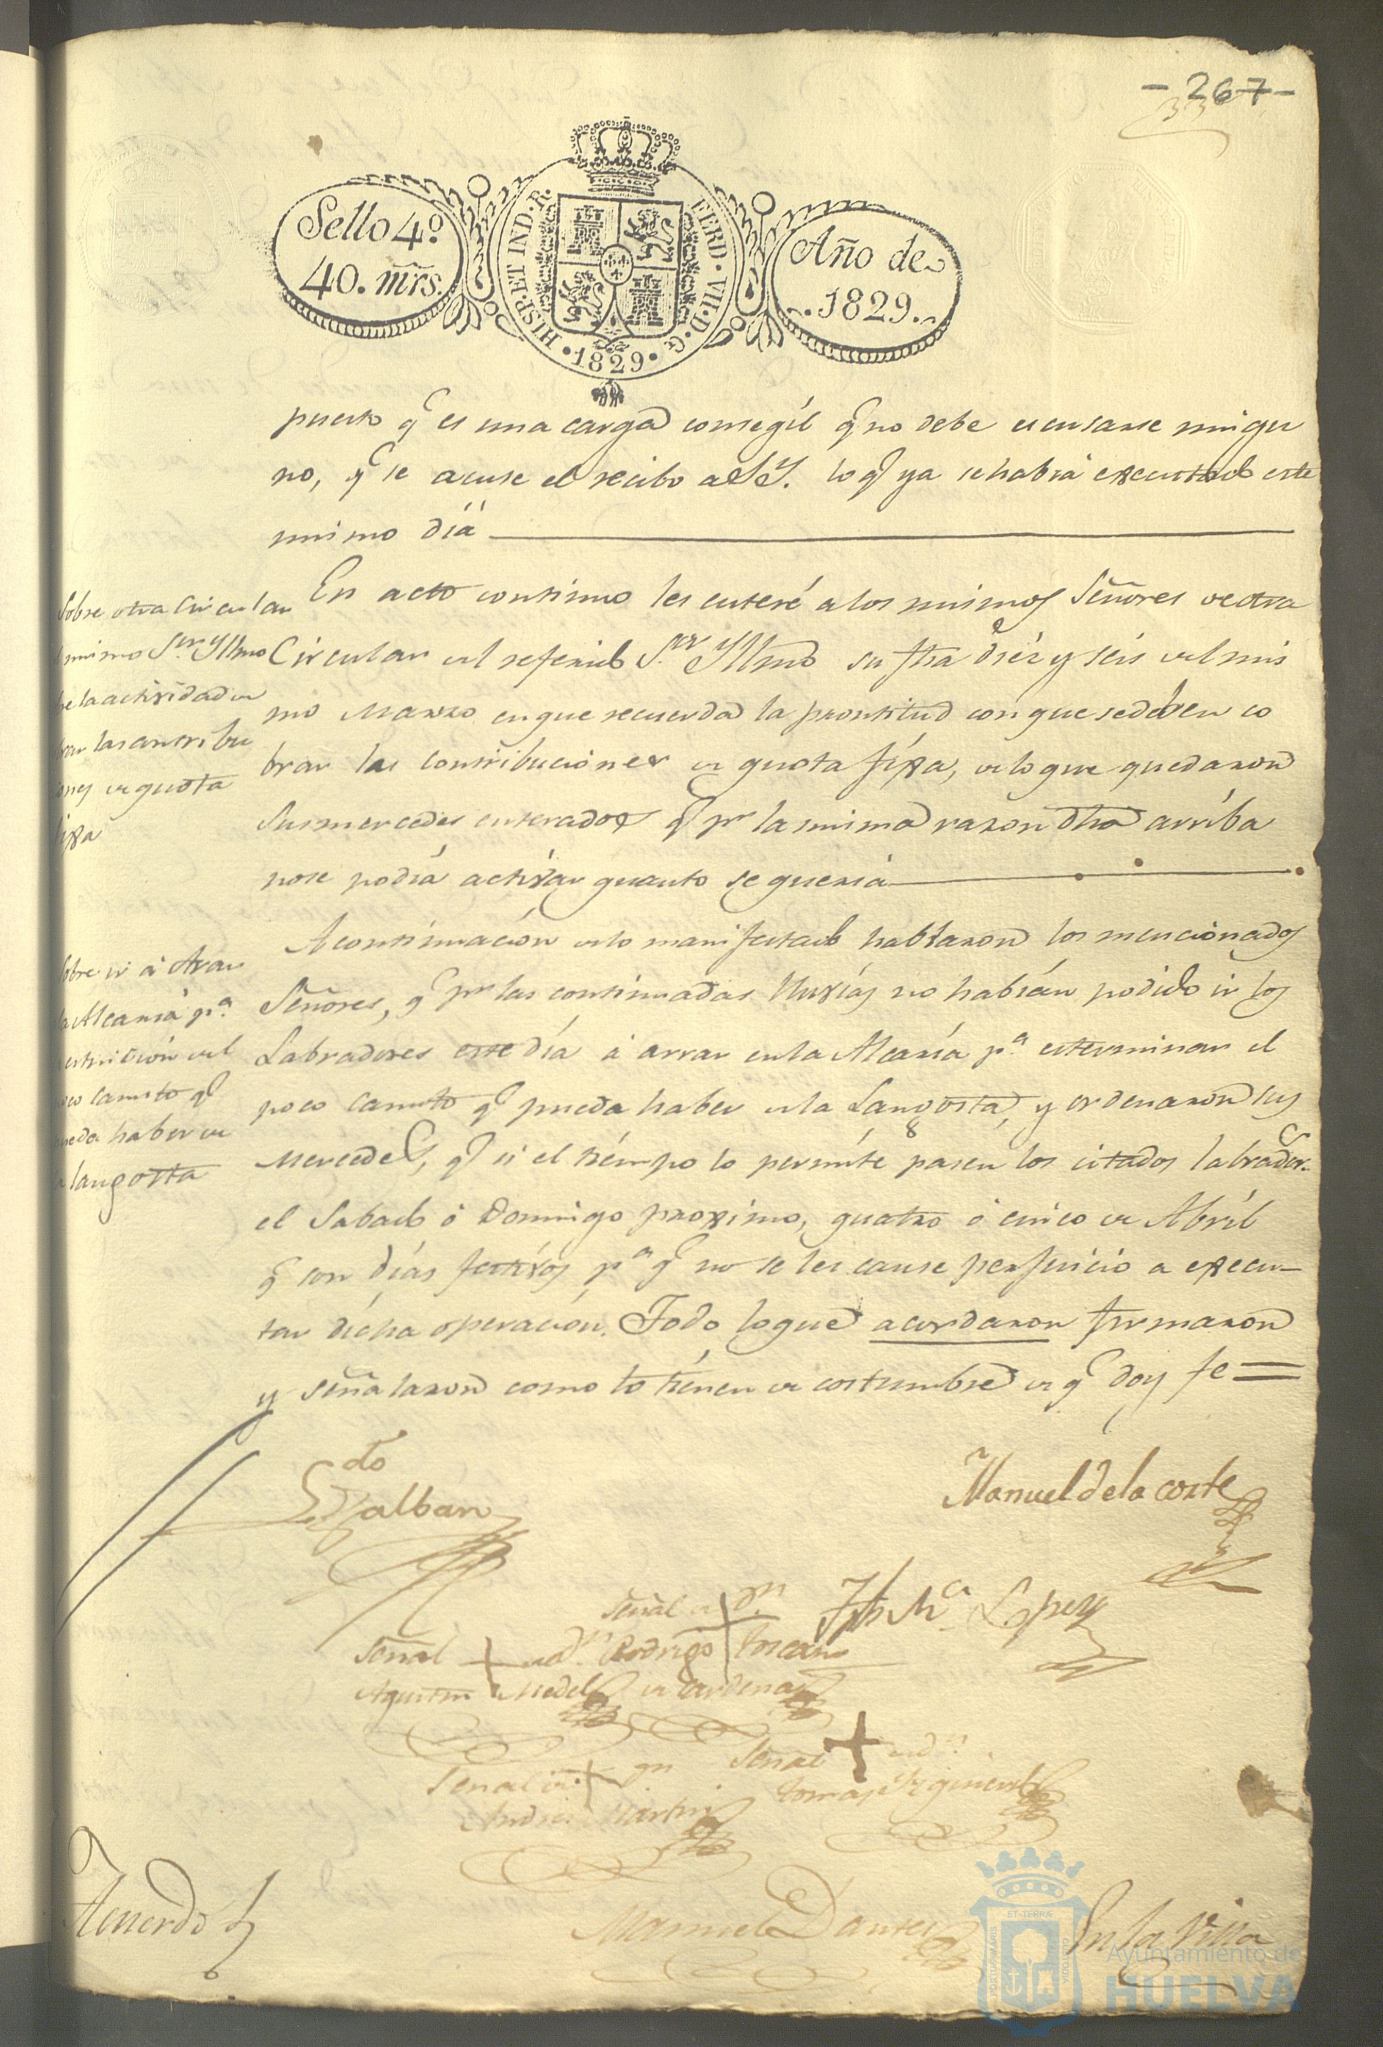 - 267 -
33
Sello 4º
40. mrs.
HISP. ET IND. R. FERD. VII. D. G.
• 1829 •
Año de
1829.
puesto qe es una carga consegil qe no debe escusarse ningu
no, qe se acuse el recibo a SSY. lo qe ya se habia executado este
mismo día
Sobre otra Circular
mismo Sor. Yllmo
la actividad en
las contribu
ones de quota
fixa
En acto continuo les enteré a los mismos Señores de otra
Circular del referido Sor. Yllmo su fha diez y séis del mis
mo Marzo en que recuerda la prontitud con que se deben co
brar las contribuciones de quota fixa, de lo que quedaron
sus mercedes enterados qe pr la misma razon dha arriba
no se podía activar quanto se queria
Sobre ir á Arar
la Alcaria pa
estincion del
poco canuto qe
pueda haber de
langosta
A continuación de lo manifestado hablaron los mencionados
Señores, qe pr las continuadas lluvias no habían podido ir los
Labradores este día á arrar en la Alcaría pa esterminar el
poco canuto qe pueda haber de la Langosta, y ordenaron sus
Mercedes, qe si el tiempo lo permite pasen los citados labradores
el Sabado ó Domingo proximo, quatro ó cinco de Abril
qe son días festivos, pa qe no se les cause perjuicio a execu-
tar dicha operación. Todo lo que acordaron firmaron
y señalaron como lo tienen de costumbre de qe doy fe =
Ldo
Galban
Manuel de la corte
Señal de Dn
Rodrigo Toscano
de Cardenas
Jph Ma Lopez
Señal + de Dn
Agustin Medel
Señal de + Dn
Andres Martin
Señal + de Dn
Tomas
Manuel Dantes
Acuerdo
En la Villa
Ayuntamiento de
HUELVA